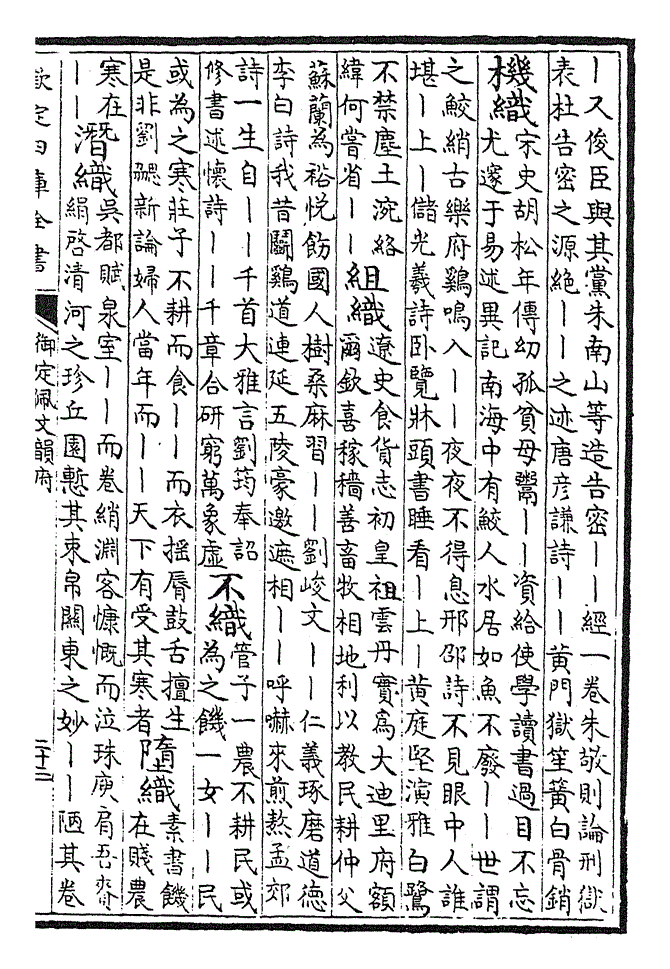 〡又俊臣與其黨朱南山等造告密〡〡經一卷朱敬則論刑獄
表杜告密之源絶〡〡之迹唐彦謙詩〡〡黄門獄笙簧白骨銷
機織
宋史胡松年傳幼孤貧母鬻〡〡資給使學讀書過目不忘
尤邃于易述異記南海中有鮫人水居如魚不廢〡〡世謂
之鮫綃古樂府鷄鳴入〡〡夜夜不得息邢邵詩不見眼中人誰
堪〡上〡儲光羲詩卧覽牀頭書睡看〡上〡黄庭堅演雅白鷺
不禁塵土涴絡
緯何嘗省〡〡
組織
遼史食貨志初皇祖雲丹實爲大迪里府額
爾欽喜稼穡善畜牧相地利以教民耕仲父
蘇蘭為裕悦飭國人樹桑麻習〡〡劉峻文〡〡仁義琢磨道德
李白詩我昔鬭鷄道連延五陵豪邀遮相〡〡呼嚇來煎熬孟郊
詩一生自〡〡千首大雅言劉筠奉詔
修書述懷詩〡〡千章合研窮萬象虚
不織
管子一農不耕民或
為之饑一女〡〡民
或為之寒莊子不耕而食〡〡而衣摇脣鼓舌擅生
是非劉勰新論婦人當年而〡〡天下有受其寒者
墮織
素書饑
在賤農
寒在
〡〡
潛織
吳都賦泉室〡〡而卷綃淵客慷慨而泣珠庾肩吾賚
絹啓清河之珍丘園慙其束帛關東之妙〡〡陋其卷
欽定四庫全書
御定佩文韻府
二十三